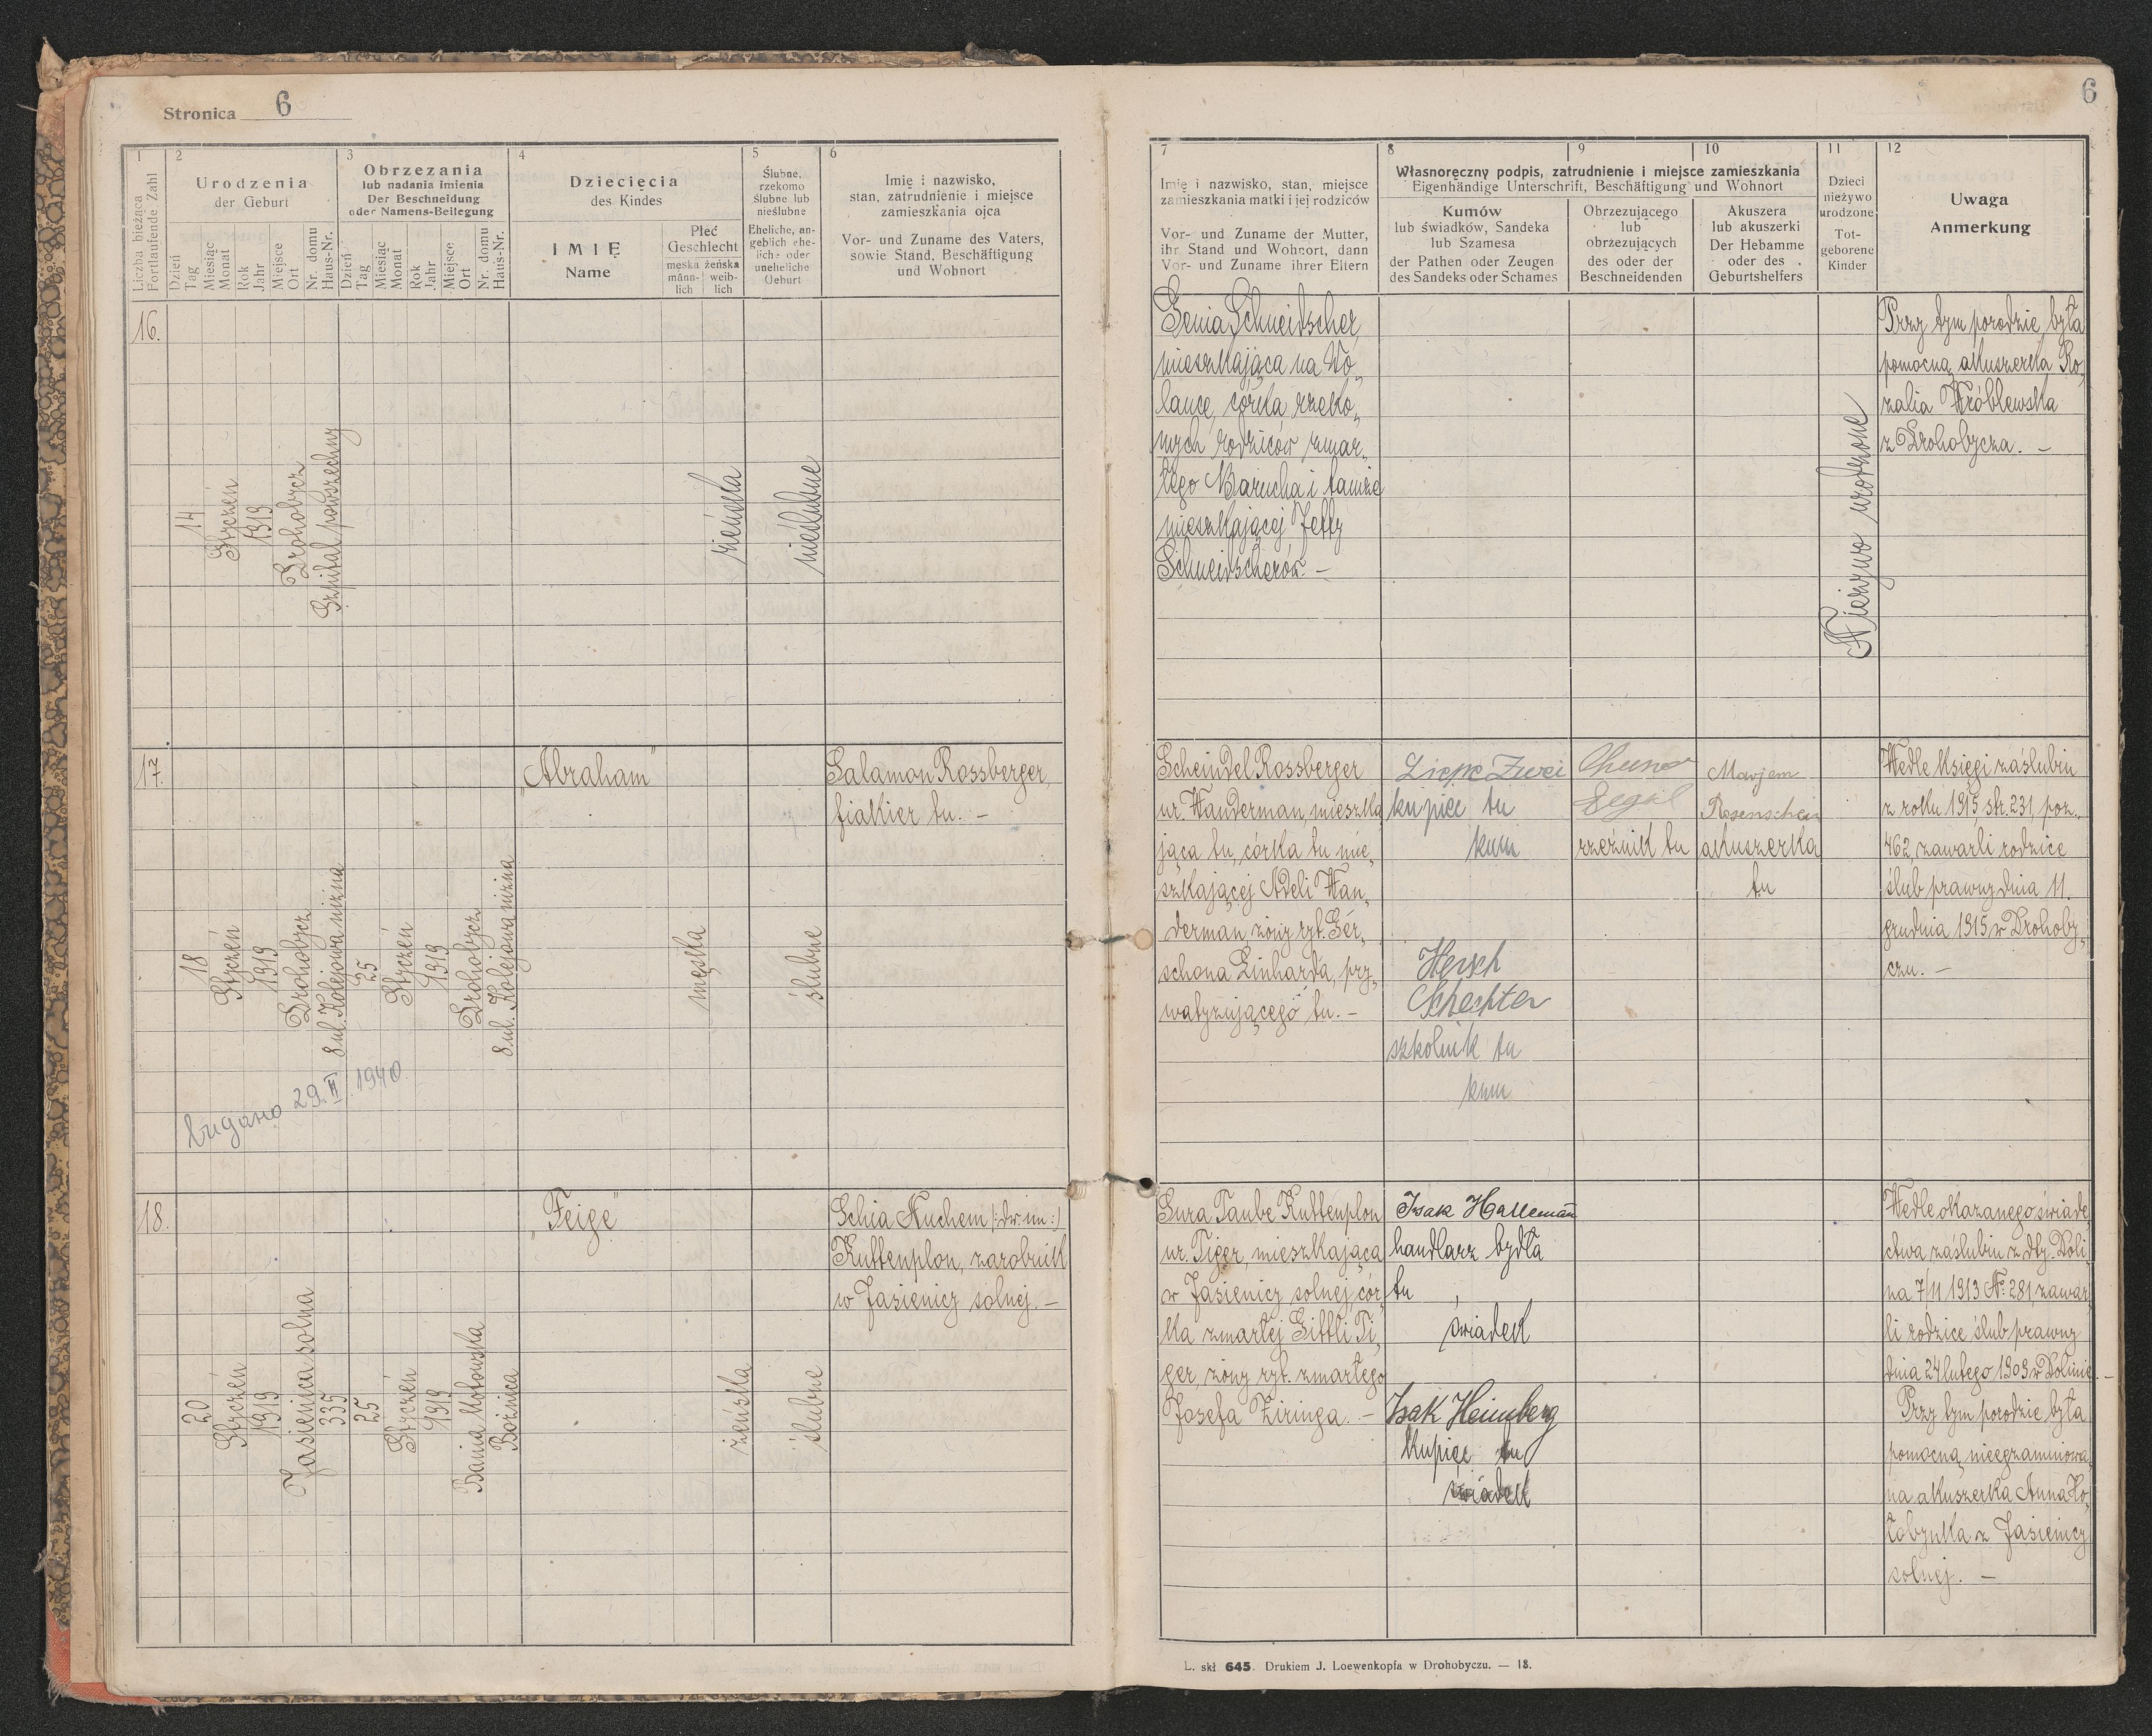 Stronica 6
6
1
Liczba bieżąca
Fortlaufende Zahl
2
Urodzenia
der Geburt
Dzień
Tag
Miesiąc
Monat
Rok
Jahr
Miejsce
Ort
Nr. domu
Haus-Nr.
3
Obrzezania
lub nadania imienia
Der Beschneidung
oder Namens-Beilegung
Dzień
Tag
Miesiąc
Monat
Rok
Jahr
Miejsce
Ort
Nr. domu
Haus-Nr.
4
Dziecięcia
des Kindes
IMIĘ
Name
Płeć
Geschlecht
męska
männ-
lich
żeńska
weib-
lich
5
Ślubne,
rzekomo
ślubne lub
nieślubne
Eheliche, an-
geblich ehe-
liche oder
uneheliche
Geburt
6
Imię i nazwisko,
stan, zatrudnienie i miejsce
zamieszkania ojca
Vor- und Zuname des Vaters,
sowie Stand, Beschäftigung
und Wohnort
7
Imię i nazwisko, stan, miejsce
zamieszkania matki i jej rodziców
Vor- und Zuname der Mutter,
ihr Stand und Wohnort, dann
Vor- und Zuname ihrer Eltern
8
9
10
Własnoręczny podpis, zatrudnienie i miejsce zamieszkania
Eigenhändige Unterschrift, Beschäftigung und Wohnort
Kumów
lub świadków, Sandeka
lub Szamesa
der Pathen oder Zeugen
des Sandeks oder Schames
Obrzezującego
lub
obrzezujących
des oder der
Beschneidenden
Akuszera
lub akuszerki
Der Hebamme
oder des
Geburtshelfers
11
Dzieci
nieżywo
urodzone
Tot-
geborene
Kinder
12
Uwaga
Anmerkung
16.
14
Styczeń
1919
Drohobycz
Szpital powszechny
żeńska
nieślubne
Genia Schneidscher,
mieszkająca na Wo„
lance, córka rzeko„
mych rodziców zmar„
łego Barucha i tamże
mieszkającej Jetty
Schneidscherów. –
Nieżywo urodzone
Przy tym porodzie była
pomocną akuszerka Ro„
zalia Wróblewska
z Drohobycza. –
17.
18
Styczeń
1919
Drohobycz
8 ul. Kolejowa niżna
25
Styczeń
1919
Drohobycz
8 ul. Kolejowa niżna
„Abraham"
męska
ślubne
Salamon Rossberger,
fiakier tu. –
Scheindel Rossberger
ur. Wanderman, mieszka„
jąca tu, córka tu mie„
szkającej Adeli Wan„
derman żony ryt. Ger„
schona Linharda, pry„
watyzującego tu. –
kupiec tu
kum
Hersch
Schechter
szkolnik tu
kum
Segal
rzeźnik tu
Marjem
Rosenschein
akuszerka
tu
Wedle Księgi zaślubin
z roku 1915 str. 231, poz.
462, zawarli rodzice
ślub prawny dnia 11.
grudnia 1915 w Drohoby„
czu. –
29. II. 1940
18.
20
Styczeń
1919
Jasienica solna
335
25
Styczeń
1919
Bania Kotowska
Bożnica
„Feige"
żeńska
ślubne
Schia Nuchem (: dw. im :)
Kuttenplon, zarobnik
w Jasienicy solnej. –
Sura Taube Kuttenplon
ur. Tiger, mieszkająca
w Jasienicy solnej, cór„
ka zmarłej Gittli Ti„
ger, żony ryt. zmarłego
Josefa Ziringa. –
Isak Hallemann
handlarz bydła
tu
świadek
Isak Heimberg
Kupiec tu
świadek
Wedle okazanego świade„
ctwa zaślubin z dty. Doli„
na 7/11 1913 No. 281, zawar„
li rodzice ślub prawny
dnia 24 lutego 1909 w Dolinie. –
Przy tym porodzie była
pomocną nieegzaminowa„
na akuszerka Anna Ko„
łobynka z Jasienicy
solnej. –
L. skł 645. Drukiem J. Loewenkopfa w Drohobyczu. — 18.